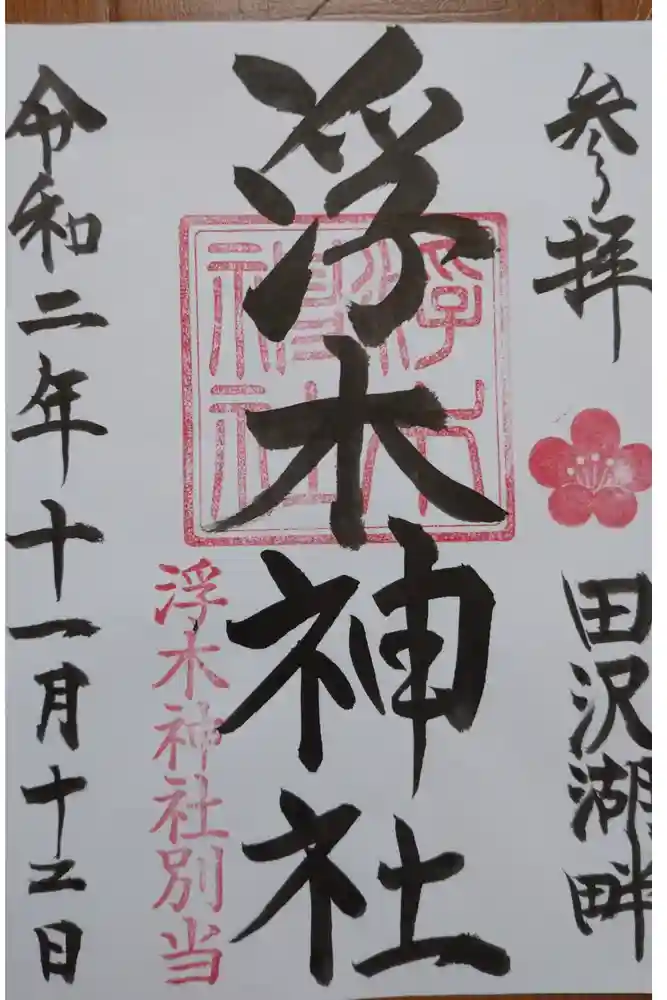 参拝
田沢湖畔
浮木神社
浮木
神社
浮木神社別当
令和二年十一月十二日